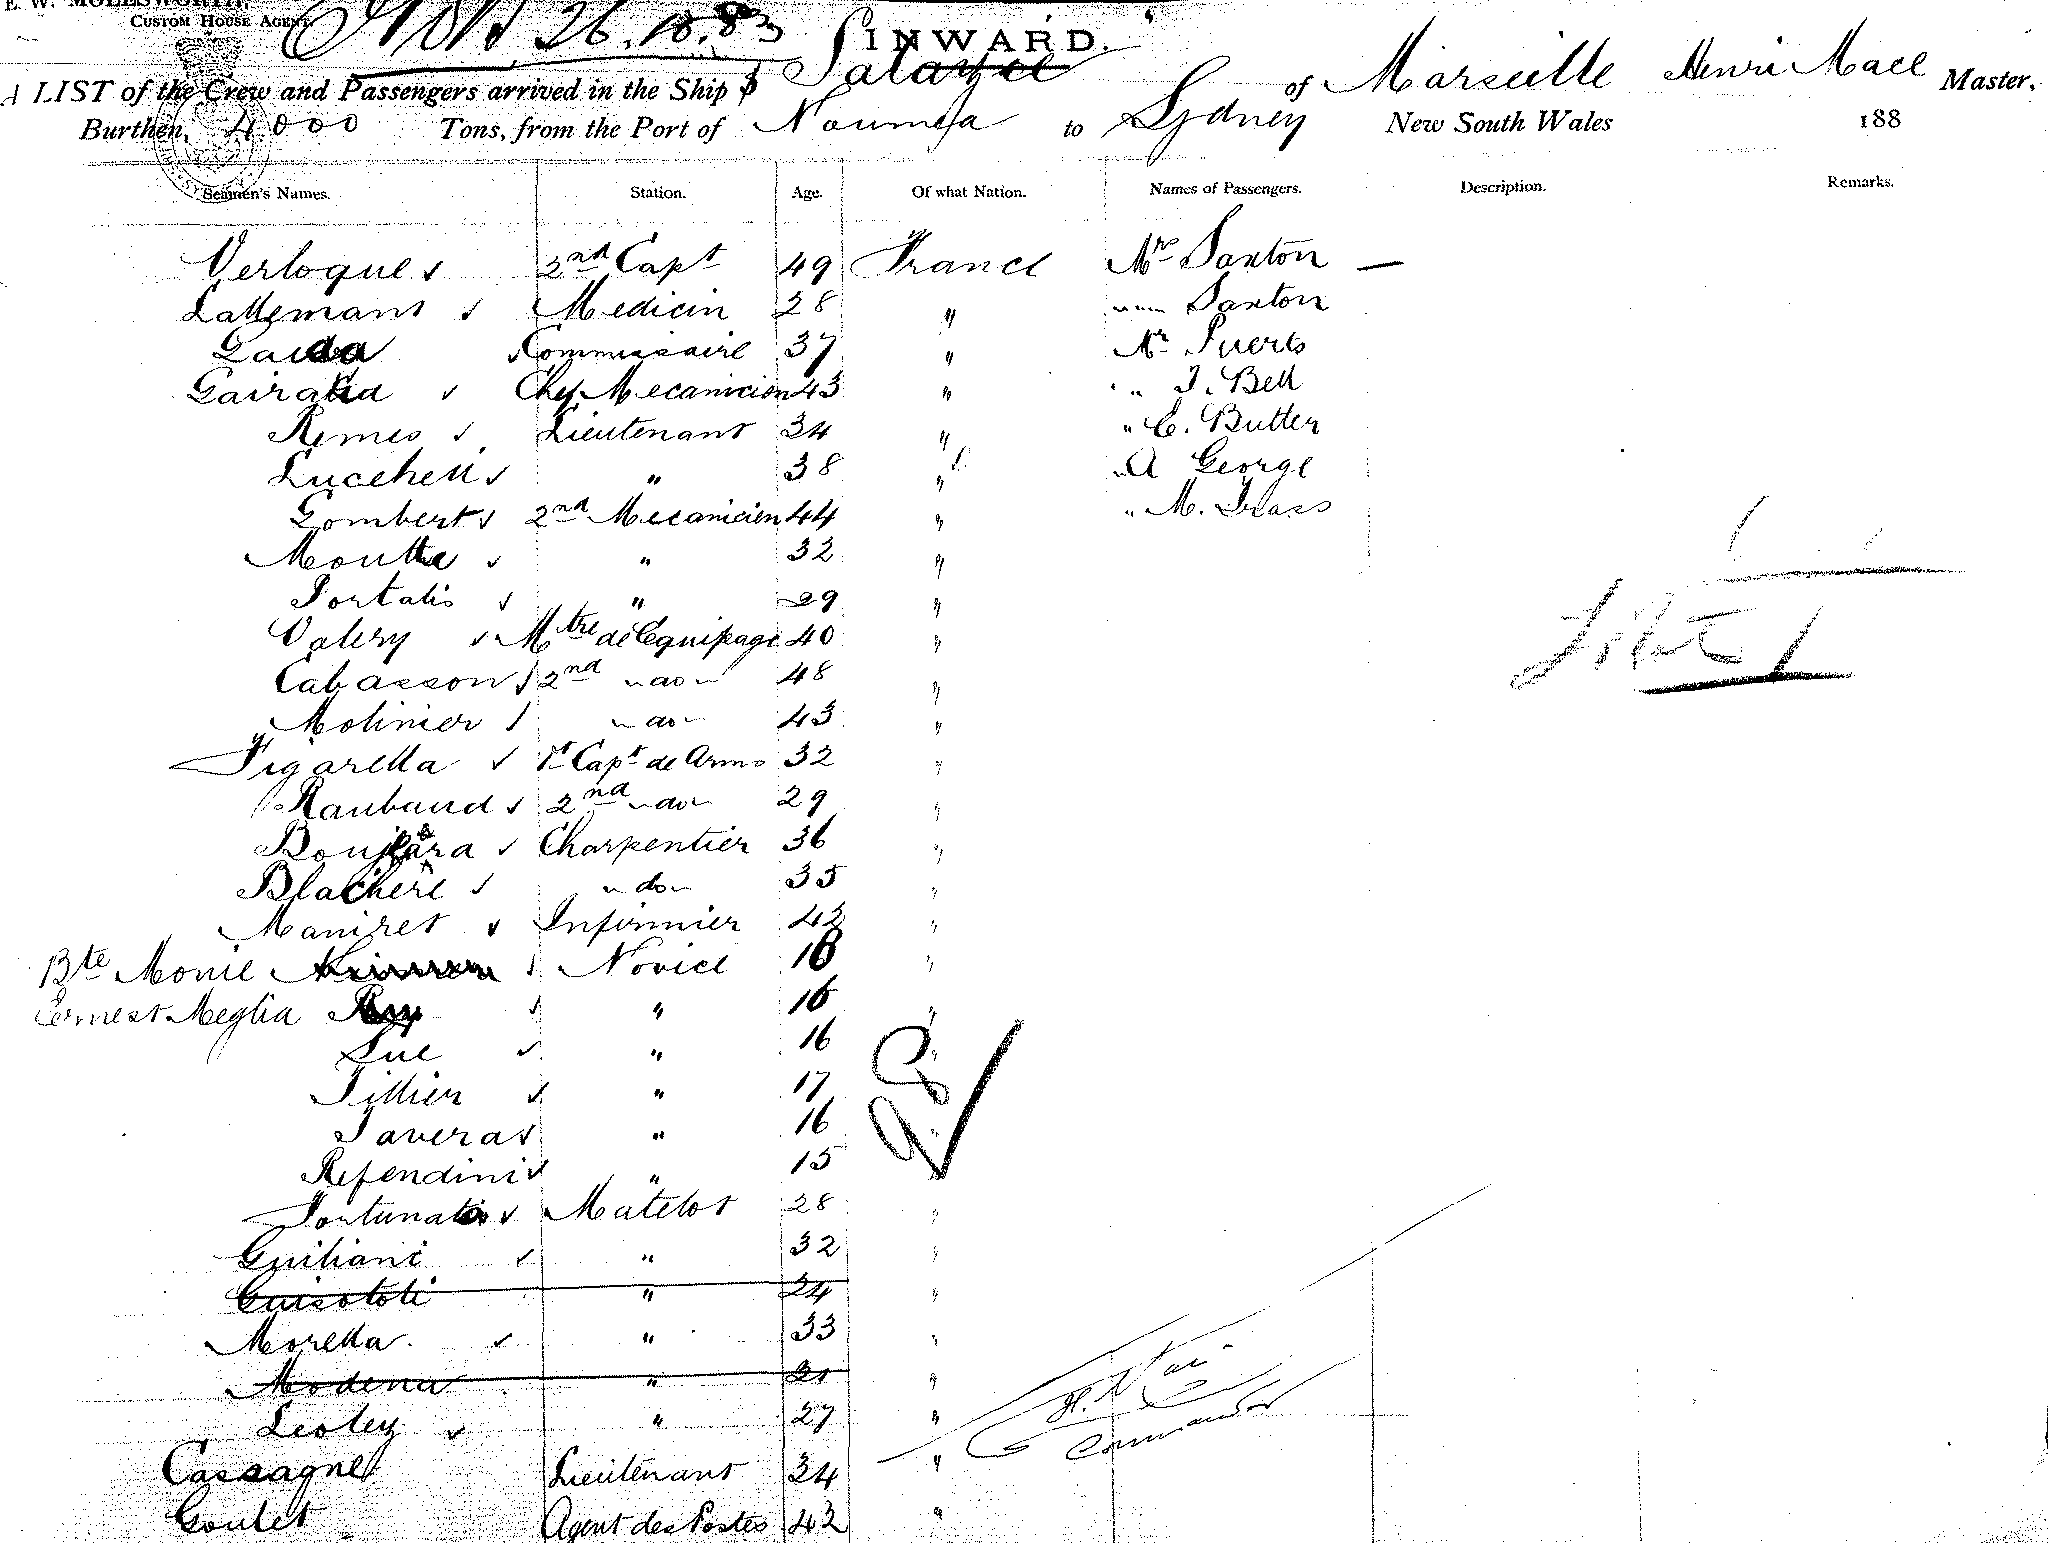 E. W. MOLESWORTH,
CUSTOM HOUSE AGENT.
26.10.83
INWARD.
A LIST of the Crew and Passengers arrived in the Ship Salazie of Marseille Henri Mace Master,
Burthen, 4000 Tons, from the Port of Noumea to Sydney New South Wales 188
Seamen's Names. Station. Age. Of what Nation. Names of Passengers. Description. Remarks.
Verloque 2nd Capt 49 France Mrs Saxton —
Lallemant Medicin 28 " Saxton
Commissaire 37 " Mr Puerto
Gairaud Chef Mecanicien 43 " " J. Bell
Remes Lieutenant 34 " " C. Butter
Lucchetti " 38 " " A George
Gombert 2nd Mecanicien 44 " " M. Grass
Moutte " 32 "
Portalis " 29 "
Valery Mtre de l'equipage 40 "
Cabasson 2nd do 48 "
Molinier do 43 "
Figarella 1r Capt de Arms 32 "
Raubaud 2nd do 29 "
Charpentier 36 "
Blachere do 35 "
Maniret Infirmier 42 "
Bte Monie Novice 18 "
Ernest Meglia " 16 "
Sue " 16 "
Tillier " 17 "
Tavera " 16 "
Refendini " 15
Matelot 28 "
Guiliani " 32 "
Guisotoli " 24 "
Morella " 33 "
Modena " 21 "
Lesley " 27 "
Commander
Cassagne Lieutenant 34 "
Goulet Agent des Postes 42 "